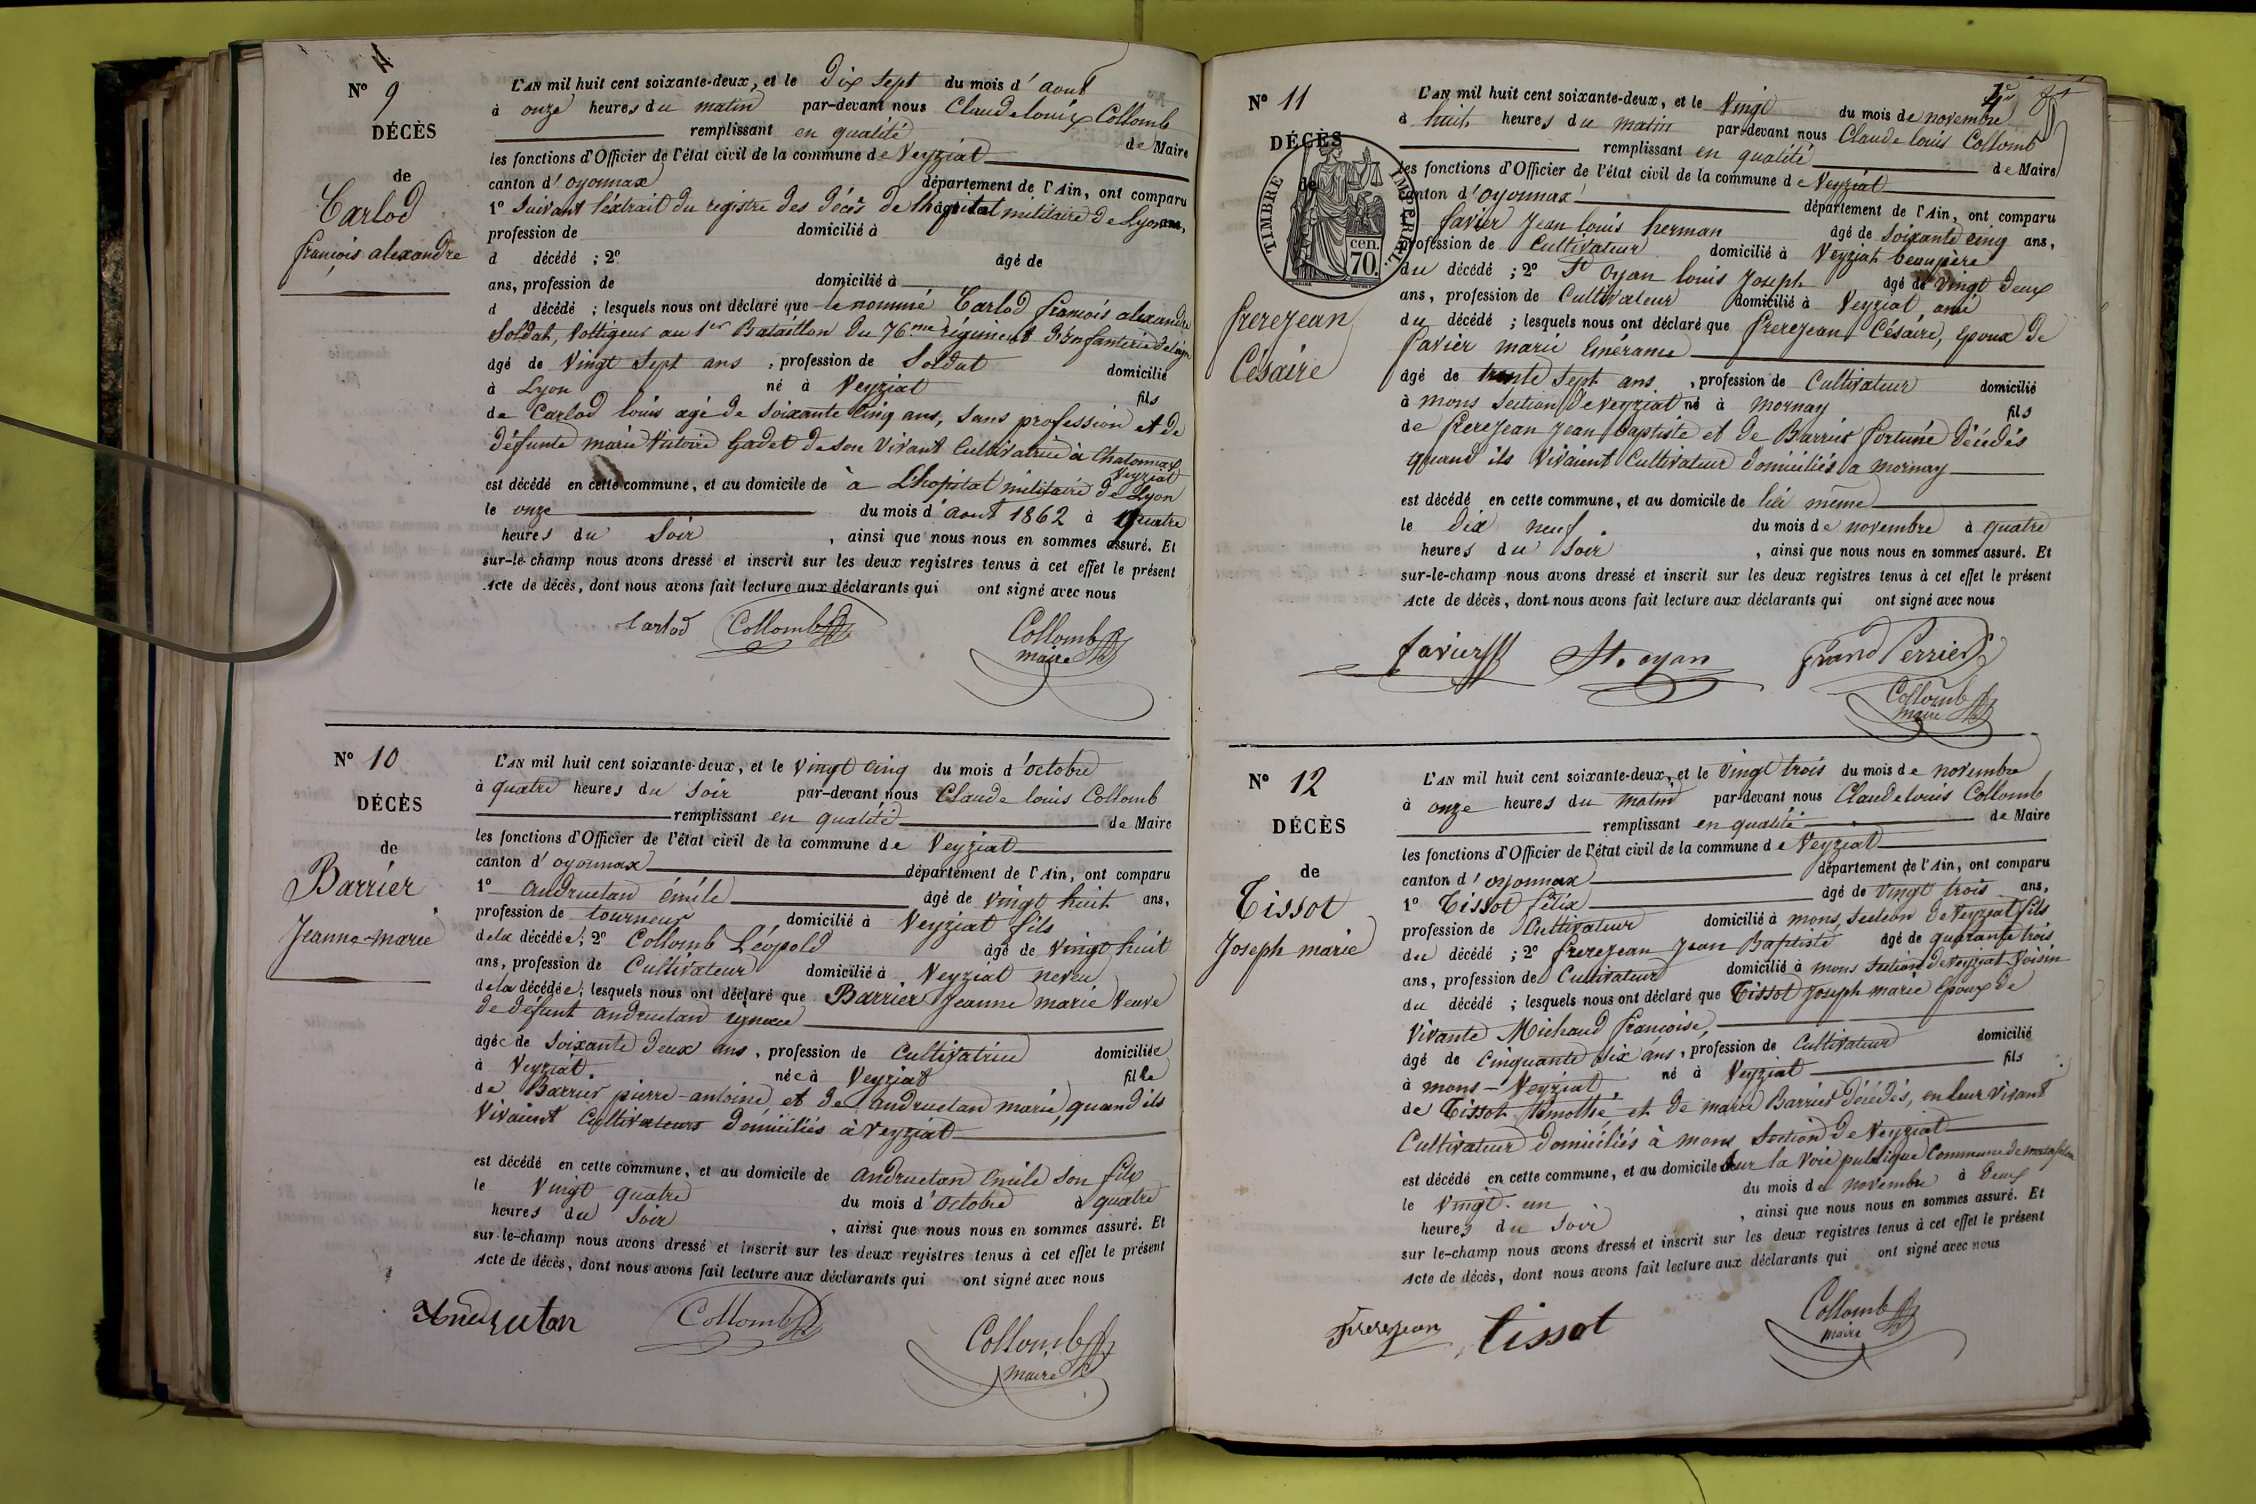 4
N° 9
DÉCÈS
de
Carlod
françois alexandre
L'AN mil huit cent soixante-deux, et le Dix sept du mois d'aout
à onze heures du matin par-devant nous Claude louis Collomb
remplissant en qualité de Maire
les fonctions d'Officier de l'état civil de la commune de Veyziat
canton d'oyonnax département de l'Ain, ont comparu
1° Suivant l'extrait du registre des décès de l'hopital militaire de Lyon ans,
profession de domicilié à
d décédé ; 2° âgé de
ans, profession de domicilié à
d décédé ; lesquels nous ont déclaré que le nommé Carlod françois alexandre
Soldat, Voltigeur au 1er Bataillon du 76me régiment d'infanterie de ligne
âgé de Vingt Sept ans, profession de Soldat domicilié
à Lyon né à Veyziat fils
de Carlod louis agé de Soixante Cinq ans, Sans profession et de
défunte marie Victoire Gadet de son Vivant Cultivatrice à Chatonnax
Veyziat
est décédé en cette commune, et au domicile de à L'hopital militaire de Lyon
le onze du mois d'aout 1862 à quatre
heures du Soir, ainsi que nous nous en sommes assuré. Et
sur-le-champ nous avons dressé et inscrit sur les deux registres tenus à cet effet le présent
Acte de décès, dont nous avons fait lecture aux déclarants qui ont signé avec nous
Carlod Collomb Collomb
maire
N° 10
DÉCÈS
de
Barrier
Jeanne-marie
L'AN mil huit cent soixante-deux, et le Vingt Cinq du mois d'octobre
à quatre heures du Soir par-devant nous Claude louis Collomb
remplissant en qualité de Maire
les fonctions d'Officier de l'état civil de la commune de Veyziat
canton d'oyonnax département de l'Ain, ont comparu
1° andruetan émile âgé de Vingt huit ans,
profession de tourneur domicilié à Veyziat fils
de la décédée ; 2° Collomb Léopold âgé de Vingt huit
ans, profession de Cultivateur domicilié à Veyziat neveu
de la décédée ; lesquels nous ont déclaré que Barrier Jeanne marie Veuve
de défunt andruetan
âgée de Soixante deux ans, profession de Cultivatrice domiciliée
à Veyziat née à Veyziat fille
de Barrier pierre-antoine et de andruetan marie, quand ils
Vivaient Cultivateurs Domiciliés à Veyziat
est décédé en cette commune, et au domicile de andruetan émile son fils
le Vingt quatre du mois d'octobre à quatre
heures du Soir, ainsi que nous nous en sommes assuré. Et
sur-le-champ nous avons dressé et inscrit sur les deux registres tenus à cet effet le présent
Acte de décès, dont nous avons fait lecture aux déclarants qui ont signé avec nous
Andruetan Collomb Collomb
maire
N° 11
DÉCÈS
de
TIMBRE IMPÉRIAL
70 cen.
frerejean
Césaire
L'AN mil huit cent soixante-deux, et le Vingt du mois de novembre
à huit heures du matin par-devant nous Claude louis Collomb
remplissant en qualité de Maire
les fonctions d'Officier de l'état civil de la commune de Veyziat
canton d'oyonnax département de l'Ain, ont comparu
favier Jean louis herman âgé de Soixante Cinq ans,
profession de Cultivateur domicilié à Veyziat beaupère
du décédé ; 2° St Oyan louis Joseph âgé de Vingt Deux
ans, profession de Cultivateur domicilié à Veyziat ami
du décédé ; lesquels nous ont déclaré que frerejean Césaire, époux de
favier marie
âgé de trente Sept ans, profession de Cultivateur domicilié
à mons Section de Veyziat né à mornay fils
de frerejean Jean baptiste et de Barrier fortuné décédés
quand ils Vivaient Cultivateur domiciliés a mornay
est décédé en cette commune, et au domicile de lui même
le Dix neuf du mois de novembre à quatre
heures du Soir, ainsi que nous nous en sommes assuré. Et
sur-le-champ nous avons dressé et inscrit sur les deux registres tenus à cet effet le présent
Acte de décès, dont nous avons fait lecture aux déclarants qui ont signé avec nous
favier St. oyan Grand Perrier
Collomb
maire
N° 12
DÉCÈS
de
Tissot
Joseph marie
L'AN mil huit cent soixante-deux, et le Vingt trois du mois de novembre
à onze heures du matin par-devant nous Claude louis Collomb
remplissant en qualité de Maire
les fonctions d'Officier de l'état civil de la commune de Veyziat
canton d'oyonnax département de l'Ain, ont comparu
1° Tissot félix âgé de Vingt trois ans,
profession de Cultivateur domicilié à mons, Section de Veyziat fils
du décédé ; 2° frerejean Jean Baptiste âgé de quarante trois
ans, profession de Cultivateur domicilié à mons Section de Veyziat Voisin
du décédé ; lesquels nous ont déclaré que Tissot Joseph marie époux de
Vivante Michaud françoise,
âgé de Cinquante Six ans, profession de Cultivateur domicilié
à mons – Veyziat né à Veyziat fils
de Tissot timothé et de marie Barrier Décédés, en leur Vivant
Cultivateur Domiciliés à mons Section de Veyziat
est décédé en cette commune, et au domicile Sur la Voie publique Commune de matafelon
le Vingt-un du mois de novembre à Deux
heures du Soir, ainsi que nous nous en sommes assuré. Et
sur le-champ nous avons dressé et inscrit sur les deux registres tenus à cet effet le présent
Acte de décès, dont nous avons fait lecture aux déclarants qui ont signé avec nous
Frerejean Tissot Collomb
maire